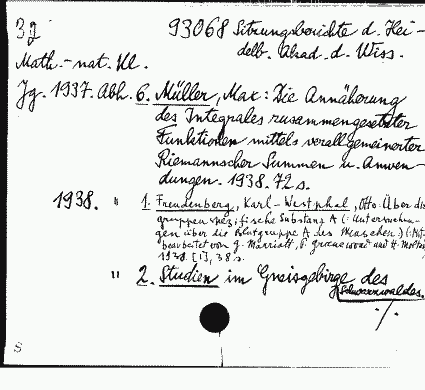 3g
93068 Sitzungsberichte d. Hei-
delb. Akad. d. Wiss.
Math.-nat. Kl.
Jg. 1937. Abh. 6. Müller, Max: Die Annäherung
des Integrales zusammengesetzter
Funktionen mittels verallgemeinerter
Riemannscher Summen u. Anwen-
dungen. 1938. 72 s.
1938. " 1. Freudenberg, Karl - Westphal, Otto: Über die
gruppenspezifische Substanz A (: Untersuchun-
gen über die Blutgruppe A des Menschen.) (Mit-
bearbeitet von g. Marriott, und H.
1938. [1], 38 s.
" 2. Studien im Gneisgebirge des
Schwarzwaldes.
./.
S